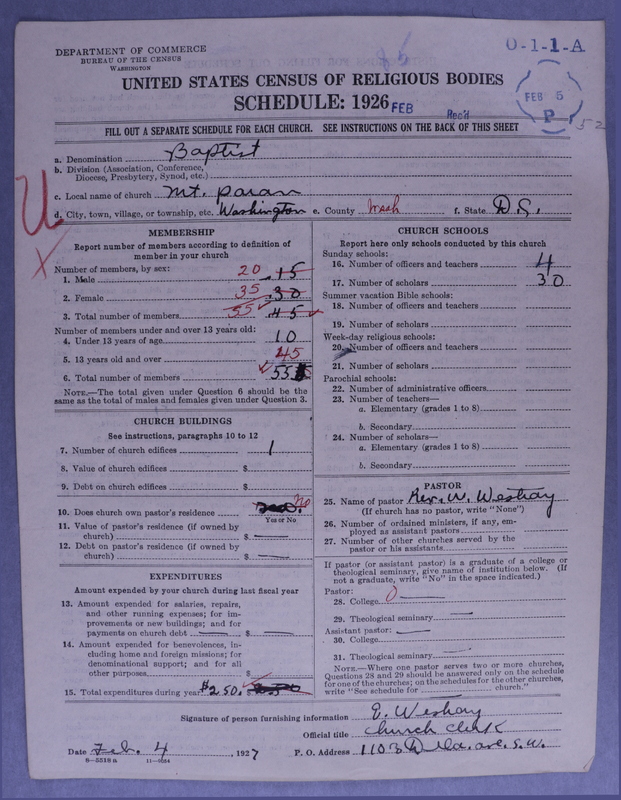 DEPARTMENT OF COMMERCE
BUREAU OF THE CENSUS
WASHINGTON
O-1-1-A
UNITED STATES CENSUS OF RELIGIOUS BODIES
SCHEDULE: 1926
FEB Rec'd
FEB 5
P
52
FILL OUT A SEPARATE SCHEDULE FOR EACH CHURCH. SEE INSTRUCTIONS ON THE BACK OF THIS SHEET
a. Denomination Baptist
b. Division (Association, Conference,
Diocese, Presbytery, Synod, etc.)
c. Local name of church Mt. Paran
d. City, town, village, or township, etc. Washington e. County Wash f. State D.C.
MEMBERSHIP
Report number of members according to definition of
member in your church
Number of members, by sex:
1. Male 20 15
2. Female 35 30
3. Total number of members 55 45
Number of members under and over 13 years old:
4. Under 13 years of age 10
5. 13 years old and over 45
6. Total number of members 55
NOTE.—The total given under Question 6 should be the
same as the total of males and females given under Question 3.
CHURCH BUILDINGS
See instructions, paragraphs 10 to 12
7. Number of church edifices 1
8. Value of church edifices $
9. Debt on church edifices $
10. Does church own pastor's residence No
Yes or No
11. Value of pastor's residence (if owned by
church) $
12. Debt on pastor's residence (if owned by
church) $
EXPENDITURES
Amount expended by your church during last fiscal year
13. Amount expended for salaries, repairs,
and other running expenses; for im-
provements or new buildings; and for
payments on church debt $
14. Amount expended for benevolences, in-
cluding home and foreign missions; for
denominational support; and for all
other purposes $
15. Total expenditures during year $2.50.
CHURCH SCHOOLS
Report here only schools conducted by this church
Sunday schools:
16. Number of officers and teachers 4
17. Number of scholars 30
Summer vacation Bible schools:
18. Number of officers and teachers
19. Number of scholars
Week-day religious schools:
20. Number of officers and teachers
21. Number of scholars
Parochial schools:
22. Number of administrative officers
23. Number of teachers—
a. Elementary (grades 1 to 8)
b. Secondary
24. Number of scholars—
a. Elementary (grades 1 to 8)
b. Secondary
PASTOR
25. Name of pastor Rev. W. Weshay
(If church has no pastor, write "None")
26. Number of ordained ministers, if any, em-
ployed as assistant pastors
27. Number of other churches served by the
pastor or his assistants
If pastor (or assistant pastor) is a graduate of a college or
theological seminary, give name of institution below. (If
not a graduate, write "No" in the space indicated.)
Pastor:
28. College 0
29. Theological seminary
Assistant pastor:
30. College
31. Theological seminary
NOTE.—Where one pastor serves two or more churches,
Questions 28 and 29 should be answered only on the schedule
for one of the churches; on the schedules for the other churches,
write "See schedule for church."
Signature of person furnishing information E. Weshay
Official title Church Clerk
Date Feb. 4, 1927 P. O. Address ave. S.W.
8—5518a 11—9034